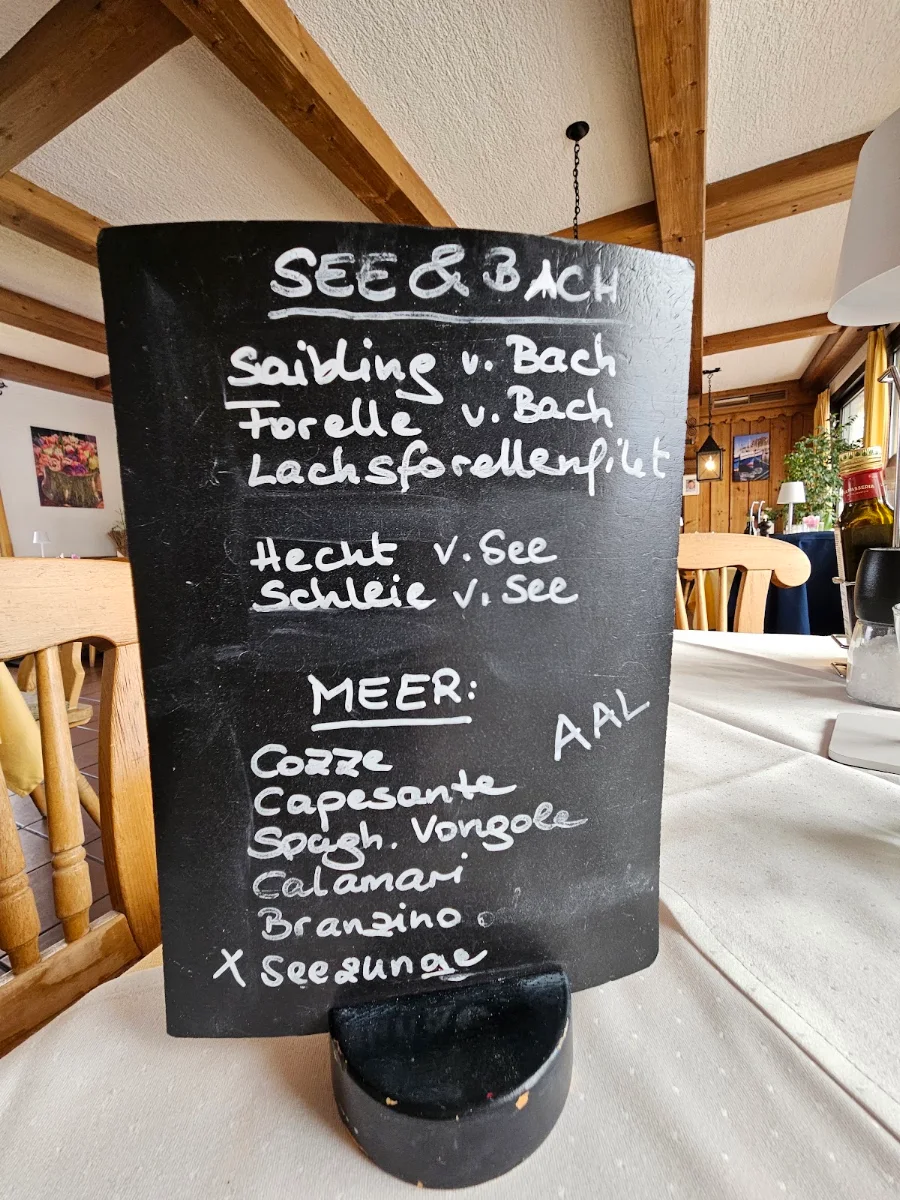 SEE & BACH
Saibling v. Bach
Forelle v. Bach
Lachsforellenfilet
Hecht v. See
Schleie v. See
MEER:
AAL
Cozze
Capesante
Spagh. Vongole
Calamari
Branzino
X Seezunge